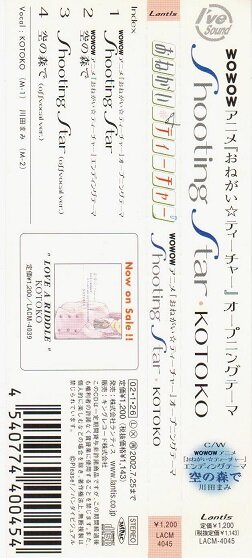 Lantis
I've Sound
WOWOWアニメ『おねがい☆ティーチャー』オープニングテーマ
Shooting Star・KOTOKO
C/W
WOWOWアニメ『おねがい☆ティーチャー』
エンディングテーマ
空の森で
川田まみ
Lantis
定価¥1,200
(税抜価格¥1,143)
LACM-4045
おねがい☆ティーチャー
WOWOWアニメ『おねがい☆ティーチャー』オープニングテーマ
Shooting Star・KOTOKO
¥1,200
LACM
4045
Index
1 Shooting Star
WOWOWアニメ『おねがい☆ティーチャー』オープニングテーマ
2 空の森で
WOWOWアニメ『おねがい☆ティーチャー』エンディングテーマ
3 Shooting Star (off vocal ver.)
4 空の森で (off vocal ver.)
Vocal : KOTOKO (M-1) 川田まみ (M-2)
Now on Sale!!
"LOVE A RIDDLE"
KOTOKO
定価¥1,200/LACM-4039
02・1・26
2002.7.25まで
STEREO
定価¥1,200(税抜価格¥1,143)
発売元:株式会社ランティス
www.lantis.co.jp
販売元:キングレコード株式会社
4 540774 400454